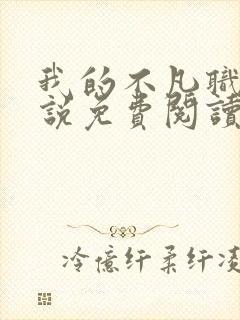 我的不凡職
說免費閱讀
冷億纤柔纤凌